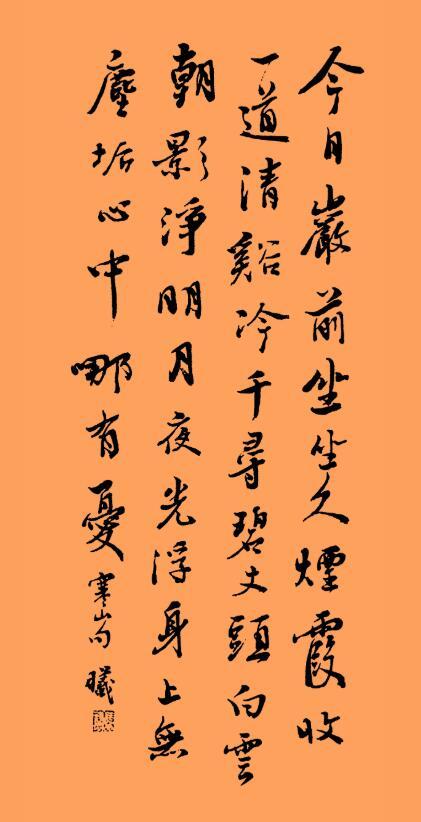 今日巖前坐坐久煙霞收
一道清谿冷千尋碧丈頭白雲
朝影淨明月夜光浮身上無
塵垢心中哪有憂
寒山句 曦